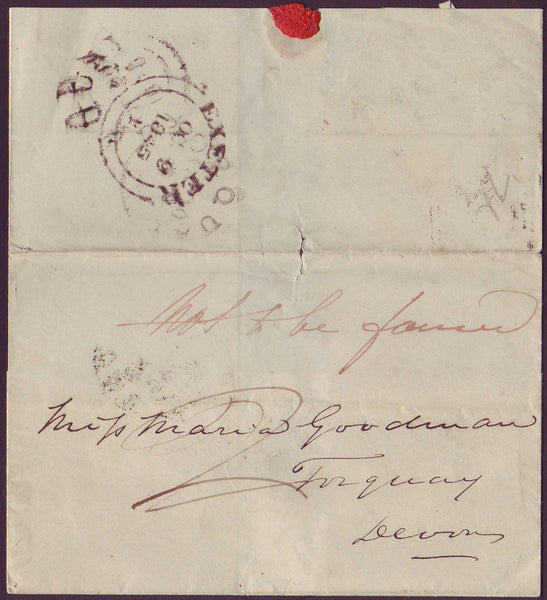 EXETER
OC 9
1845
Not to be found
Miss Maria Goodman
Torquay
Devon
2